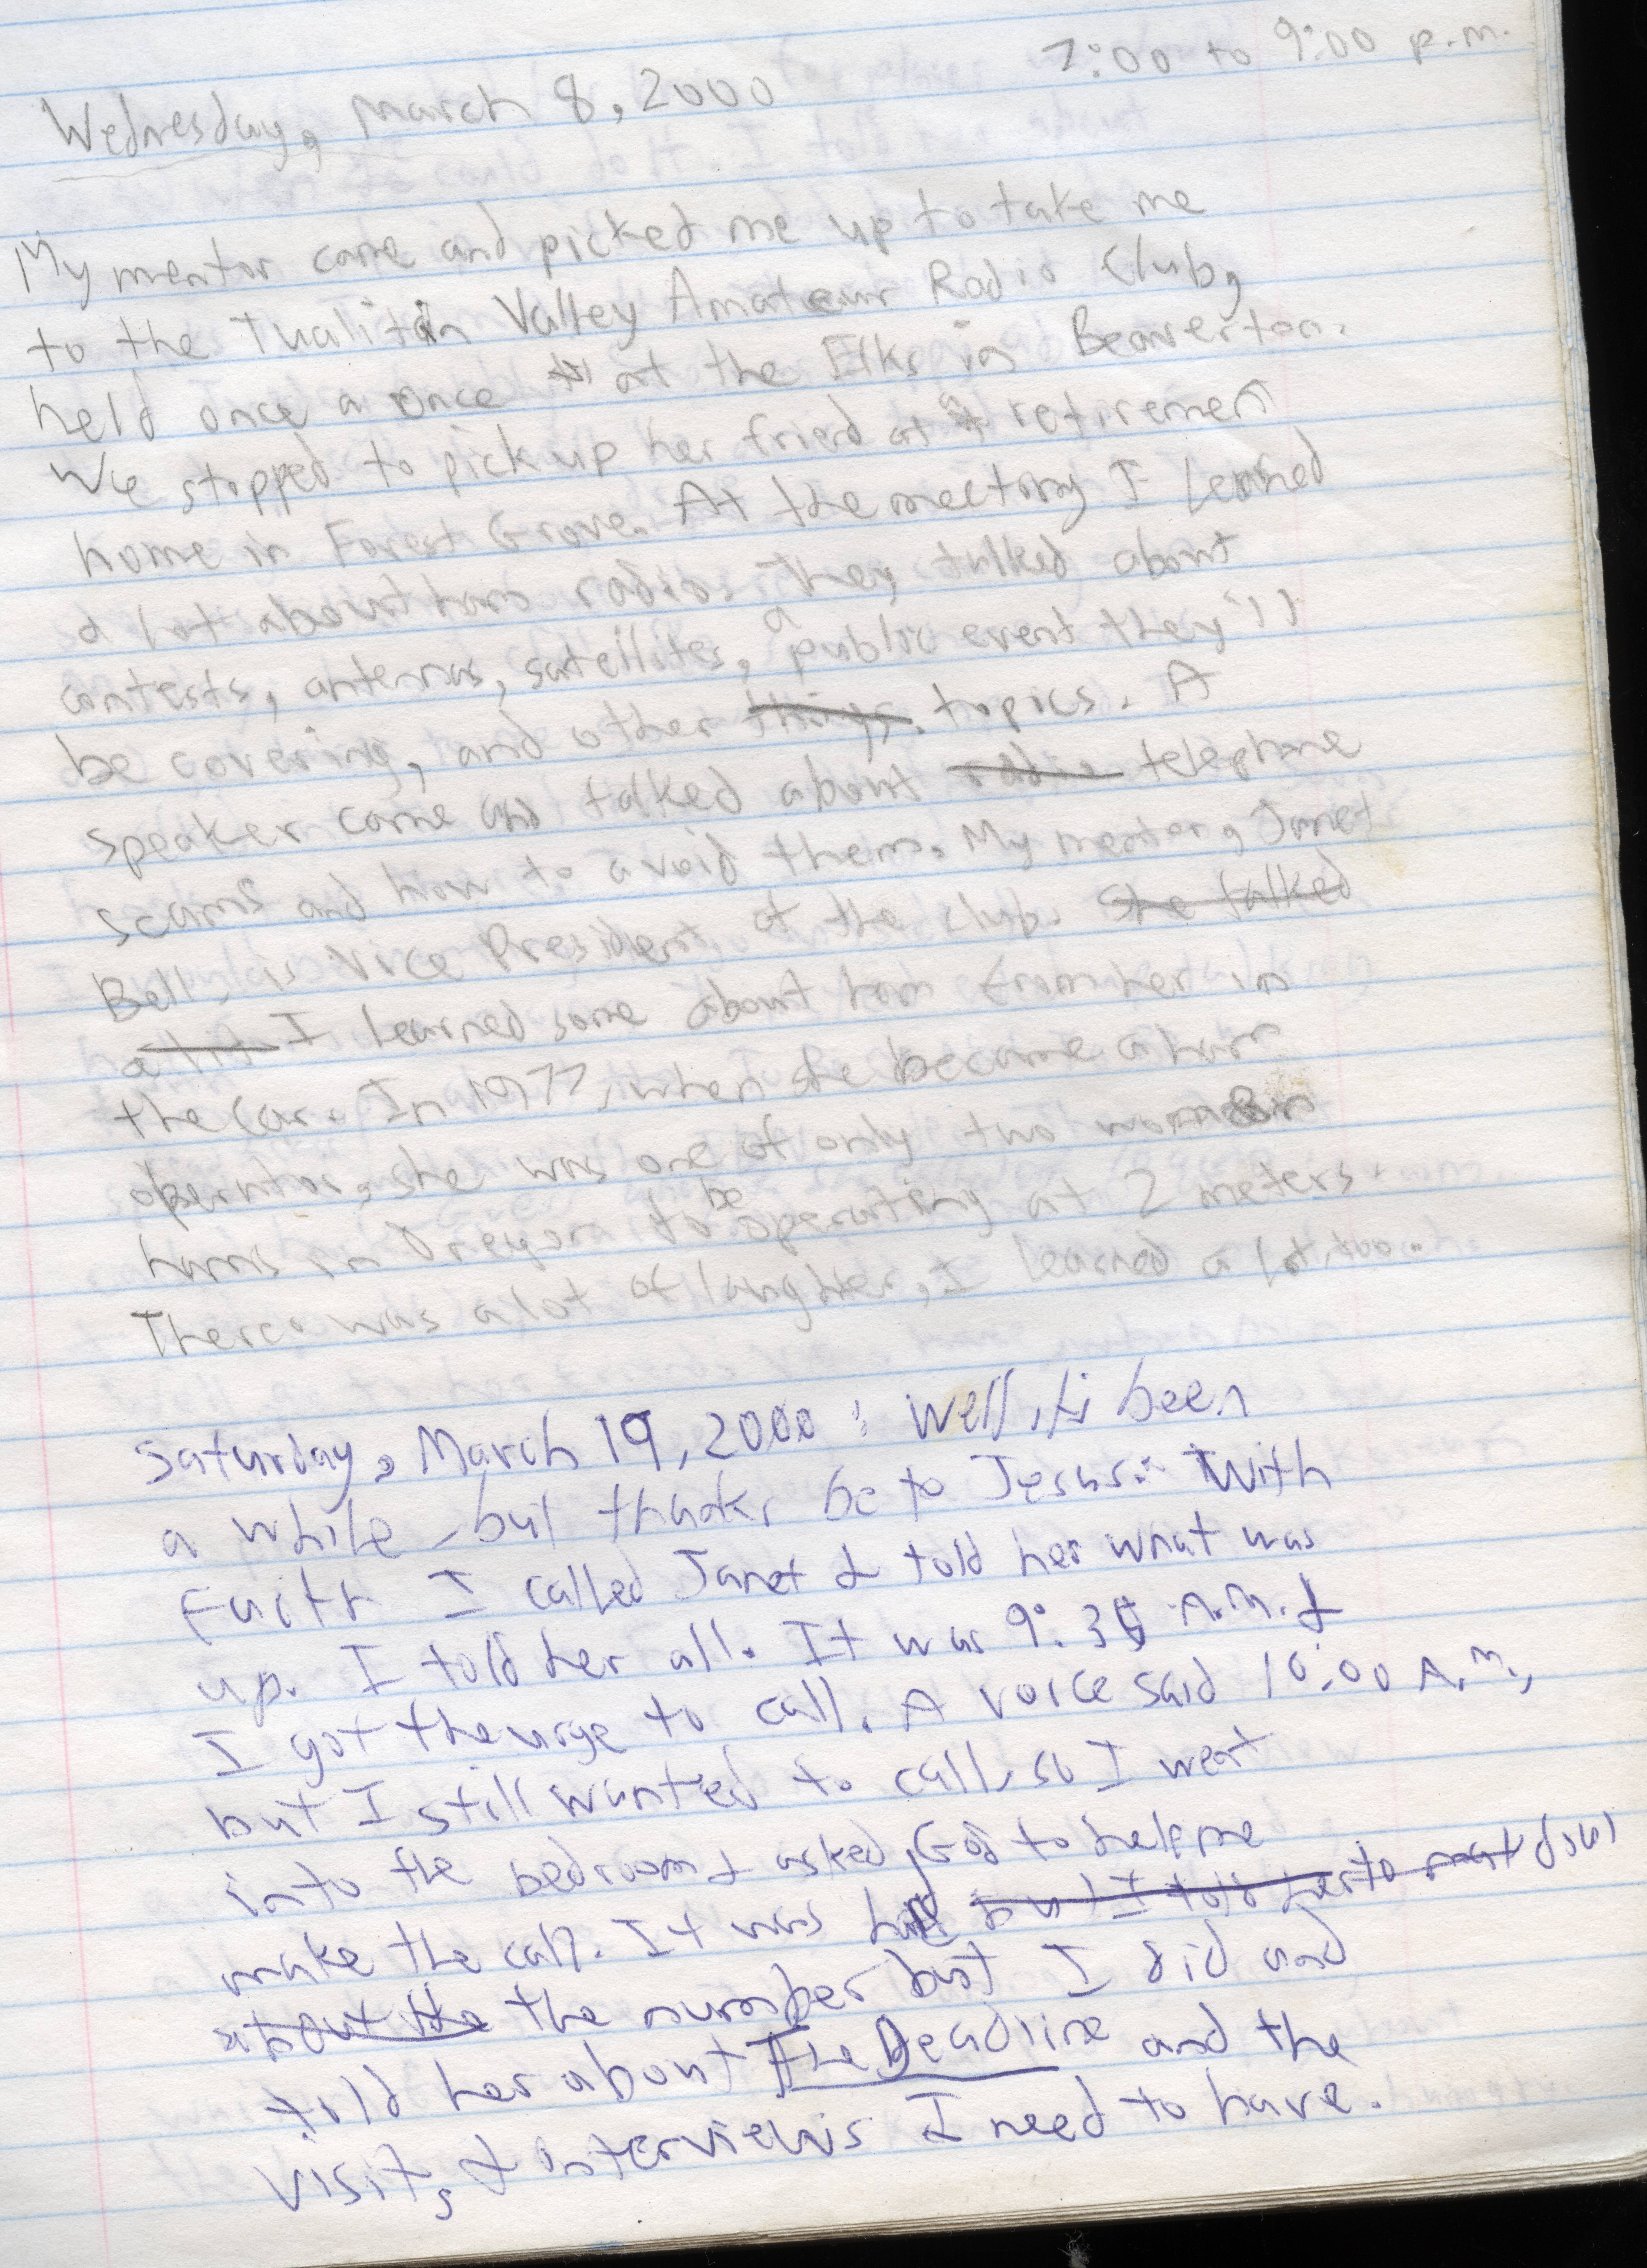 7:00 to 9:00 p.m.
Wednesday, March 8, 2000
My mentor came and picked me up to take me
to the Tualitin Valley Amateur Radio Club,
held once a once at the Elks in Beaverton.
We stopped to pick up her friend at a retirement
home in Forest Grove. At the meeting I lerned
a lot about ham radio. They talked about
contests, antennas, satellites, a public event they'll
be covering, and other things. topics. A
speaker came and talked about radio telephone
scams and how to avoid them. My mentor, Janet
Bell, is Vice President of the club. She talked
a lit I learned some about ham from her in
the car. In 1977, when she became a ham
operator, she was one of only two women
hams in Oregon to be operating at 2 meters.
There was a lot of laughter, I learned a lot, too.
Saturday, March 19, 2000: Well, it's been
a while, but thanks be to Jesus. With
Faith I called Janet & told her what was
up. I told her all. It was 9:35 A.M. &
I got the urge to call. A voice said 10:00 A.M.,
but I still wanted to call, so I went
into the bedroom & asked God to help me
make the call. It was hard but I told her to not dial
about the the number but I did and
told her about The Deadline and the
visit, & interviews I need to have.